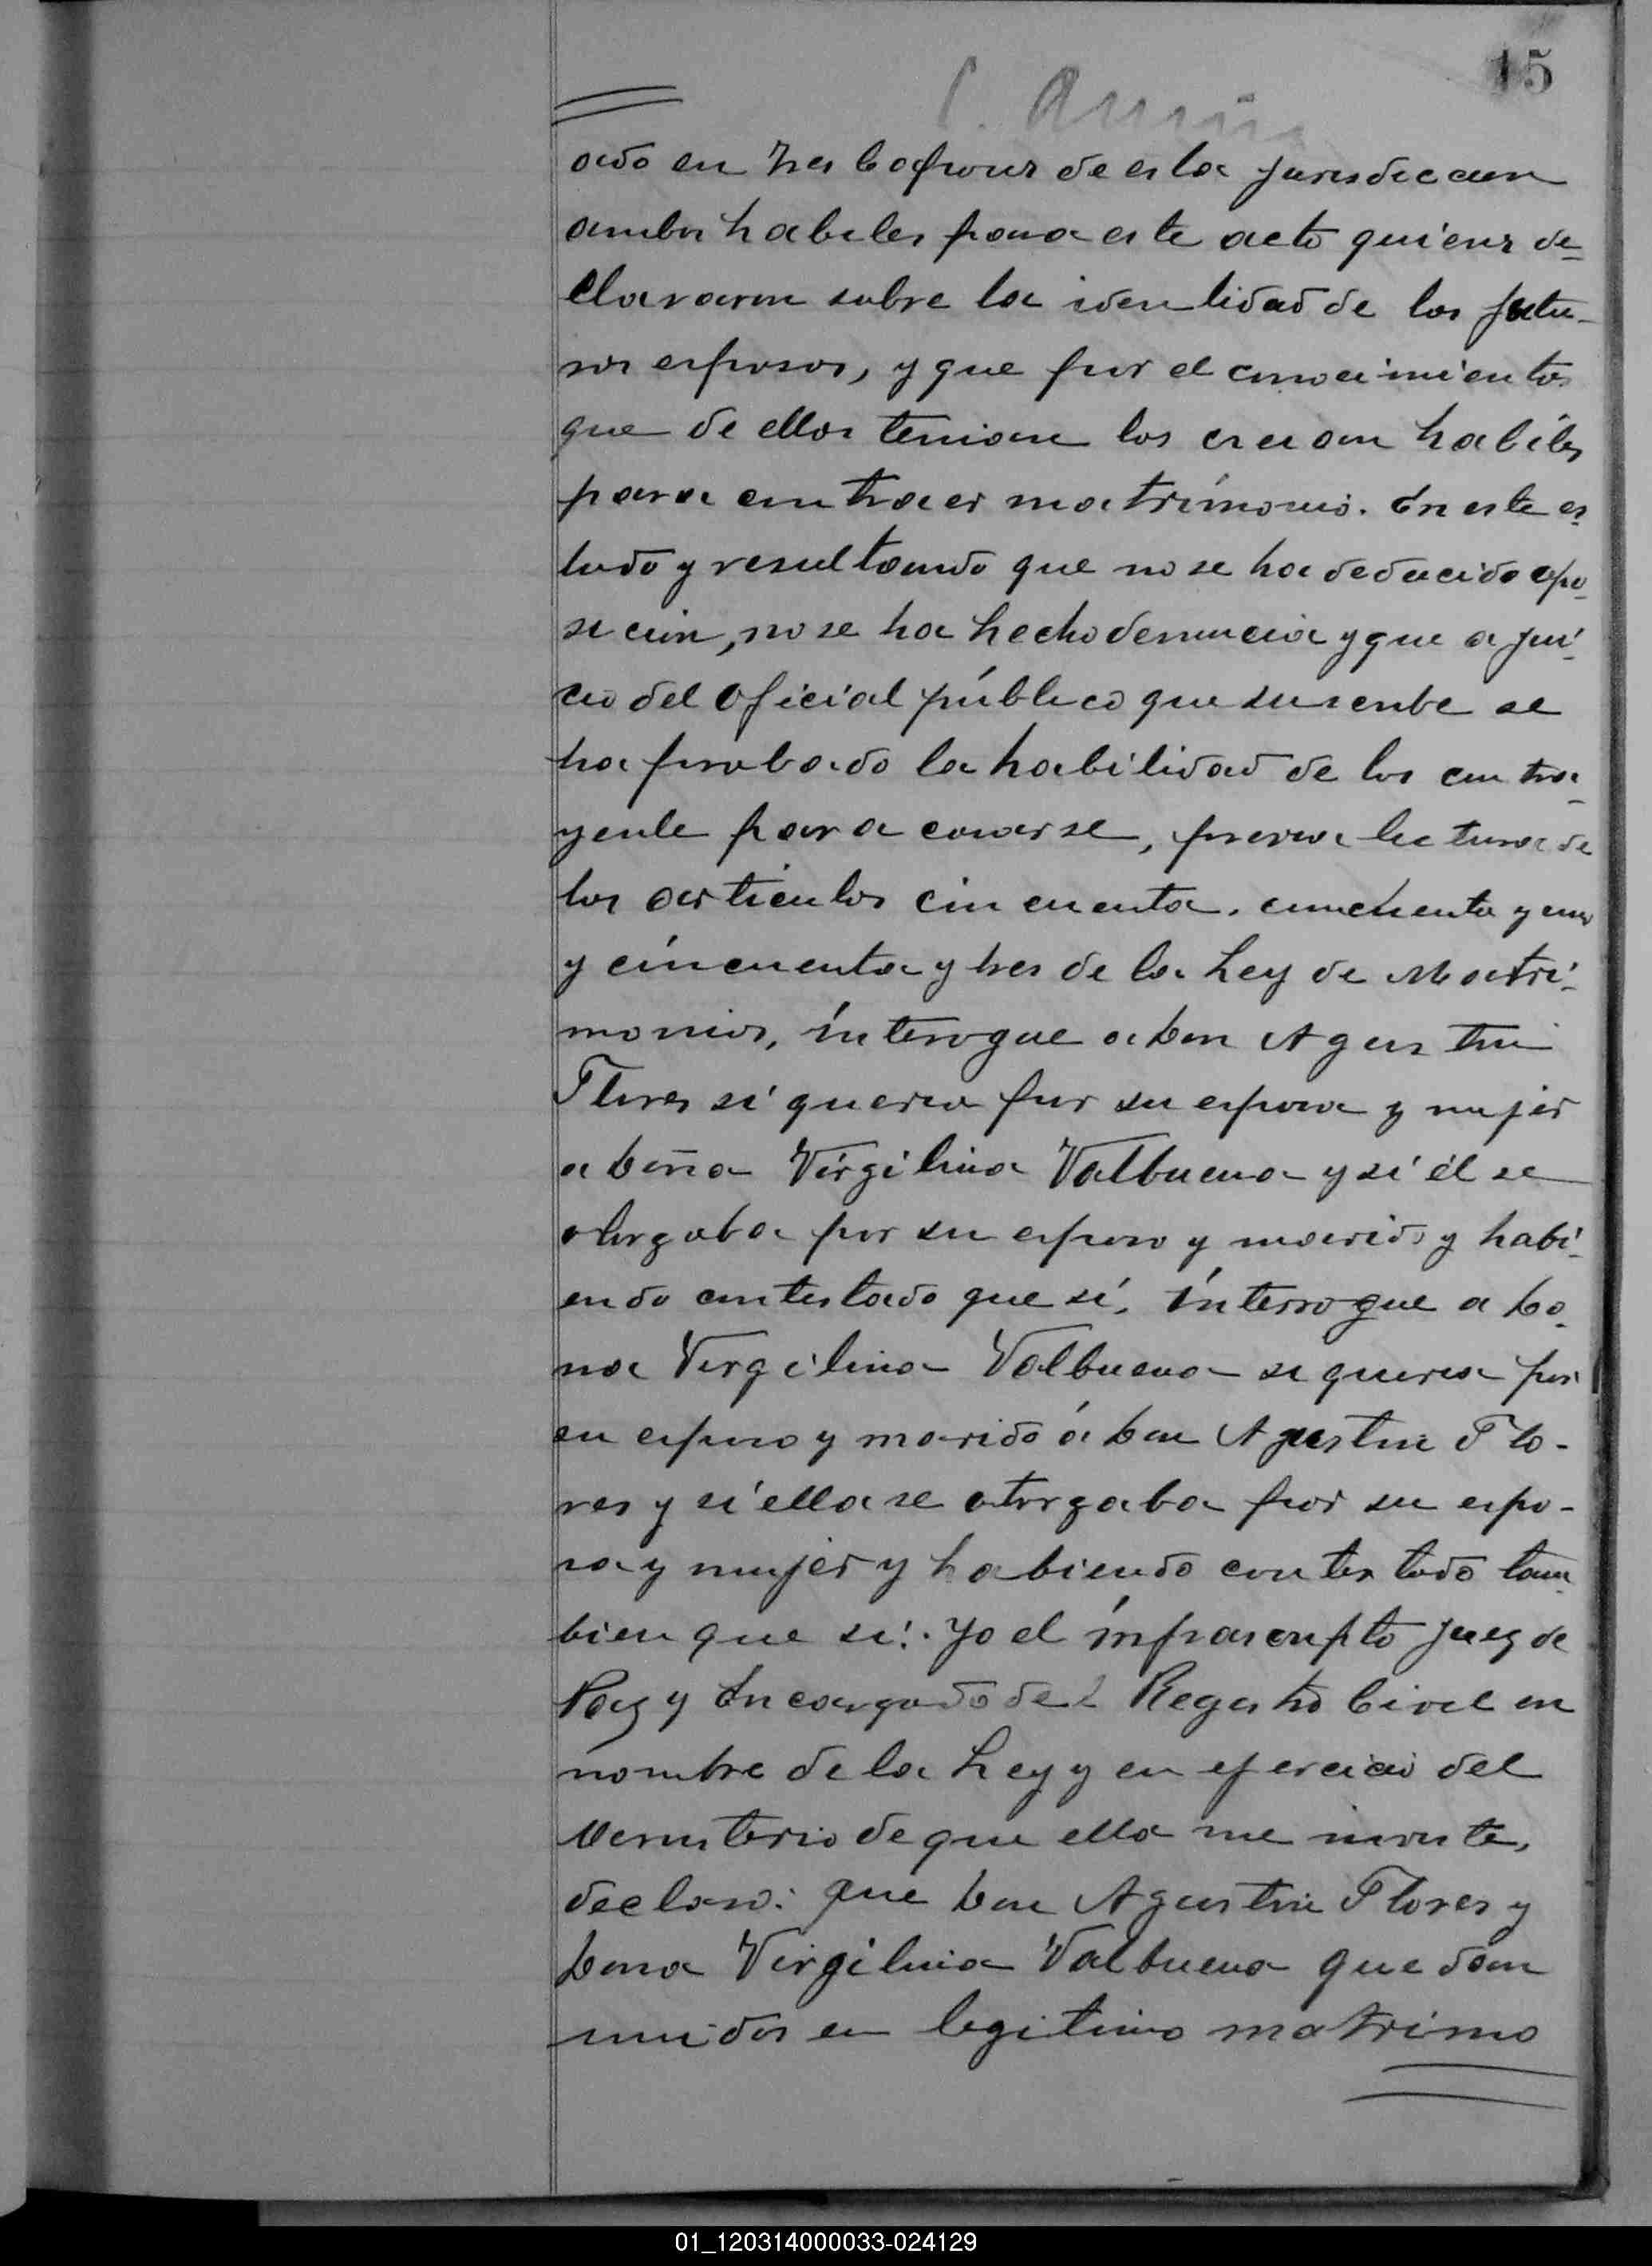 15
ado en Tres Cofrones de esta jurisdiccion
ambos habiles para este acto quienes de-
clararon sobre la identidad de los futu-
ros esposos, y que por el conocimiento
que de ellos tenian los creian habiles
para contraer matrimonio. En este es
tado y resultando que no se ha deducido opo-
sicion, no se ha hecho denuncia y que a jui-
cio del Oficial público que suscribe se
ha probado la habilidad de los contra-
yente para casarse, previa lectura de
los articulos cincuenta, cincuenta y uno
y cincuenta y tres de la Ley de Matri-
monios, interogue a Don Agustin
Flores si queria por su esposa y mujer
a Doña Virgilina Valbuena y si él se
otorgaba por su esposo y marido y habi-
endo contestado que sí, interrogue a Do-
na Virgilina Valbuena si queria por
su esposo y marido á Don Agustin Flo-
res y si ella se otorgaba por su espo-
sa y mujer y habiendo contestado tam-
bien que si: Yo el infrascripto Juez de
Paz y Encargado del Registro Civil en
nombre de la Ley y en ejercicio del
Menisterio de que ella me inviste,
declaro: que Don Agustin Flores y
Dona Virgilina Valbuena quedan
unidos en legitimo matrimo
01_120314000033-024129